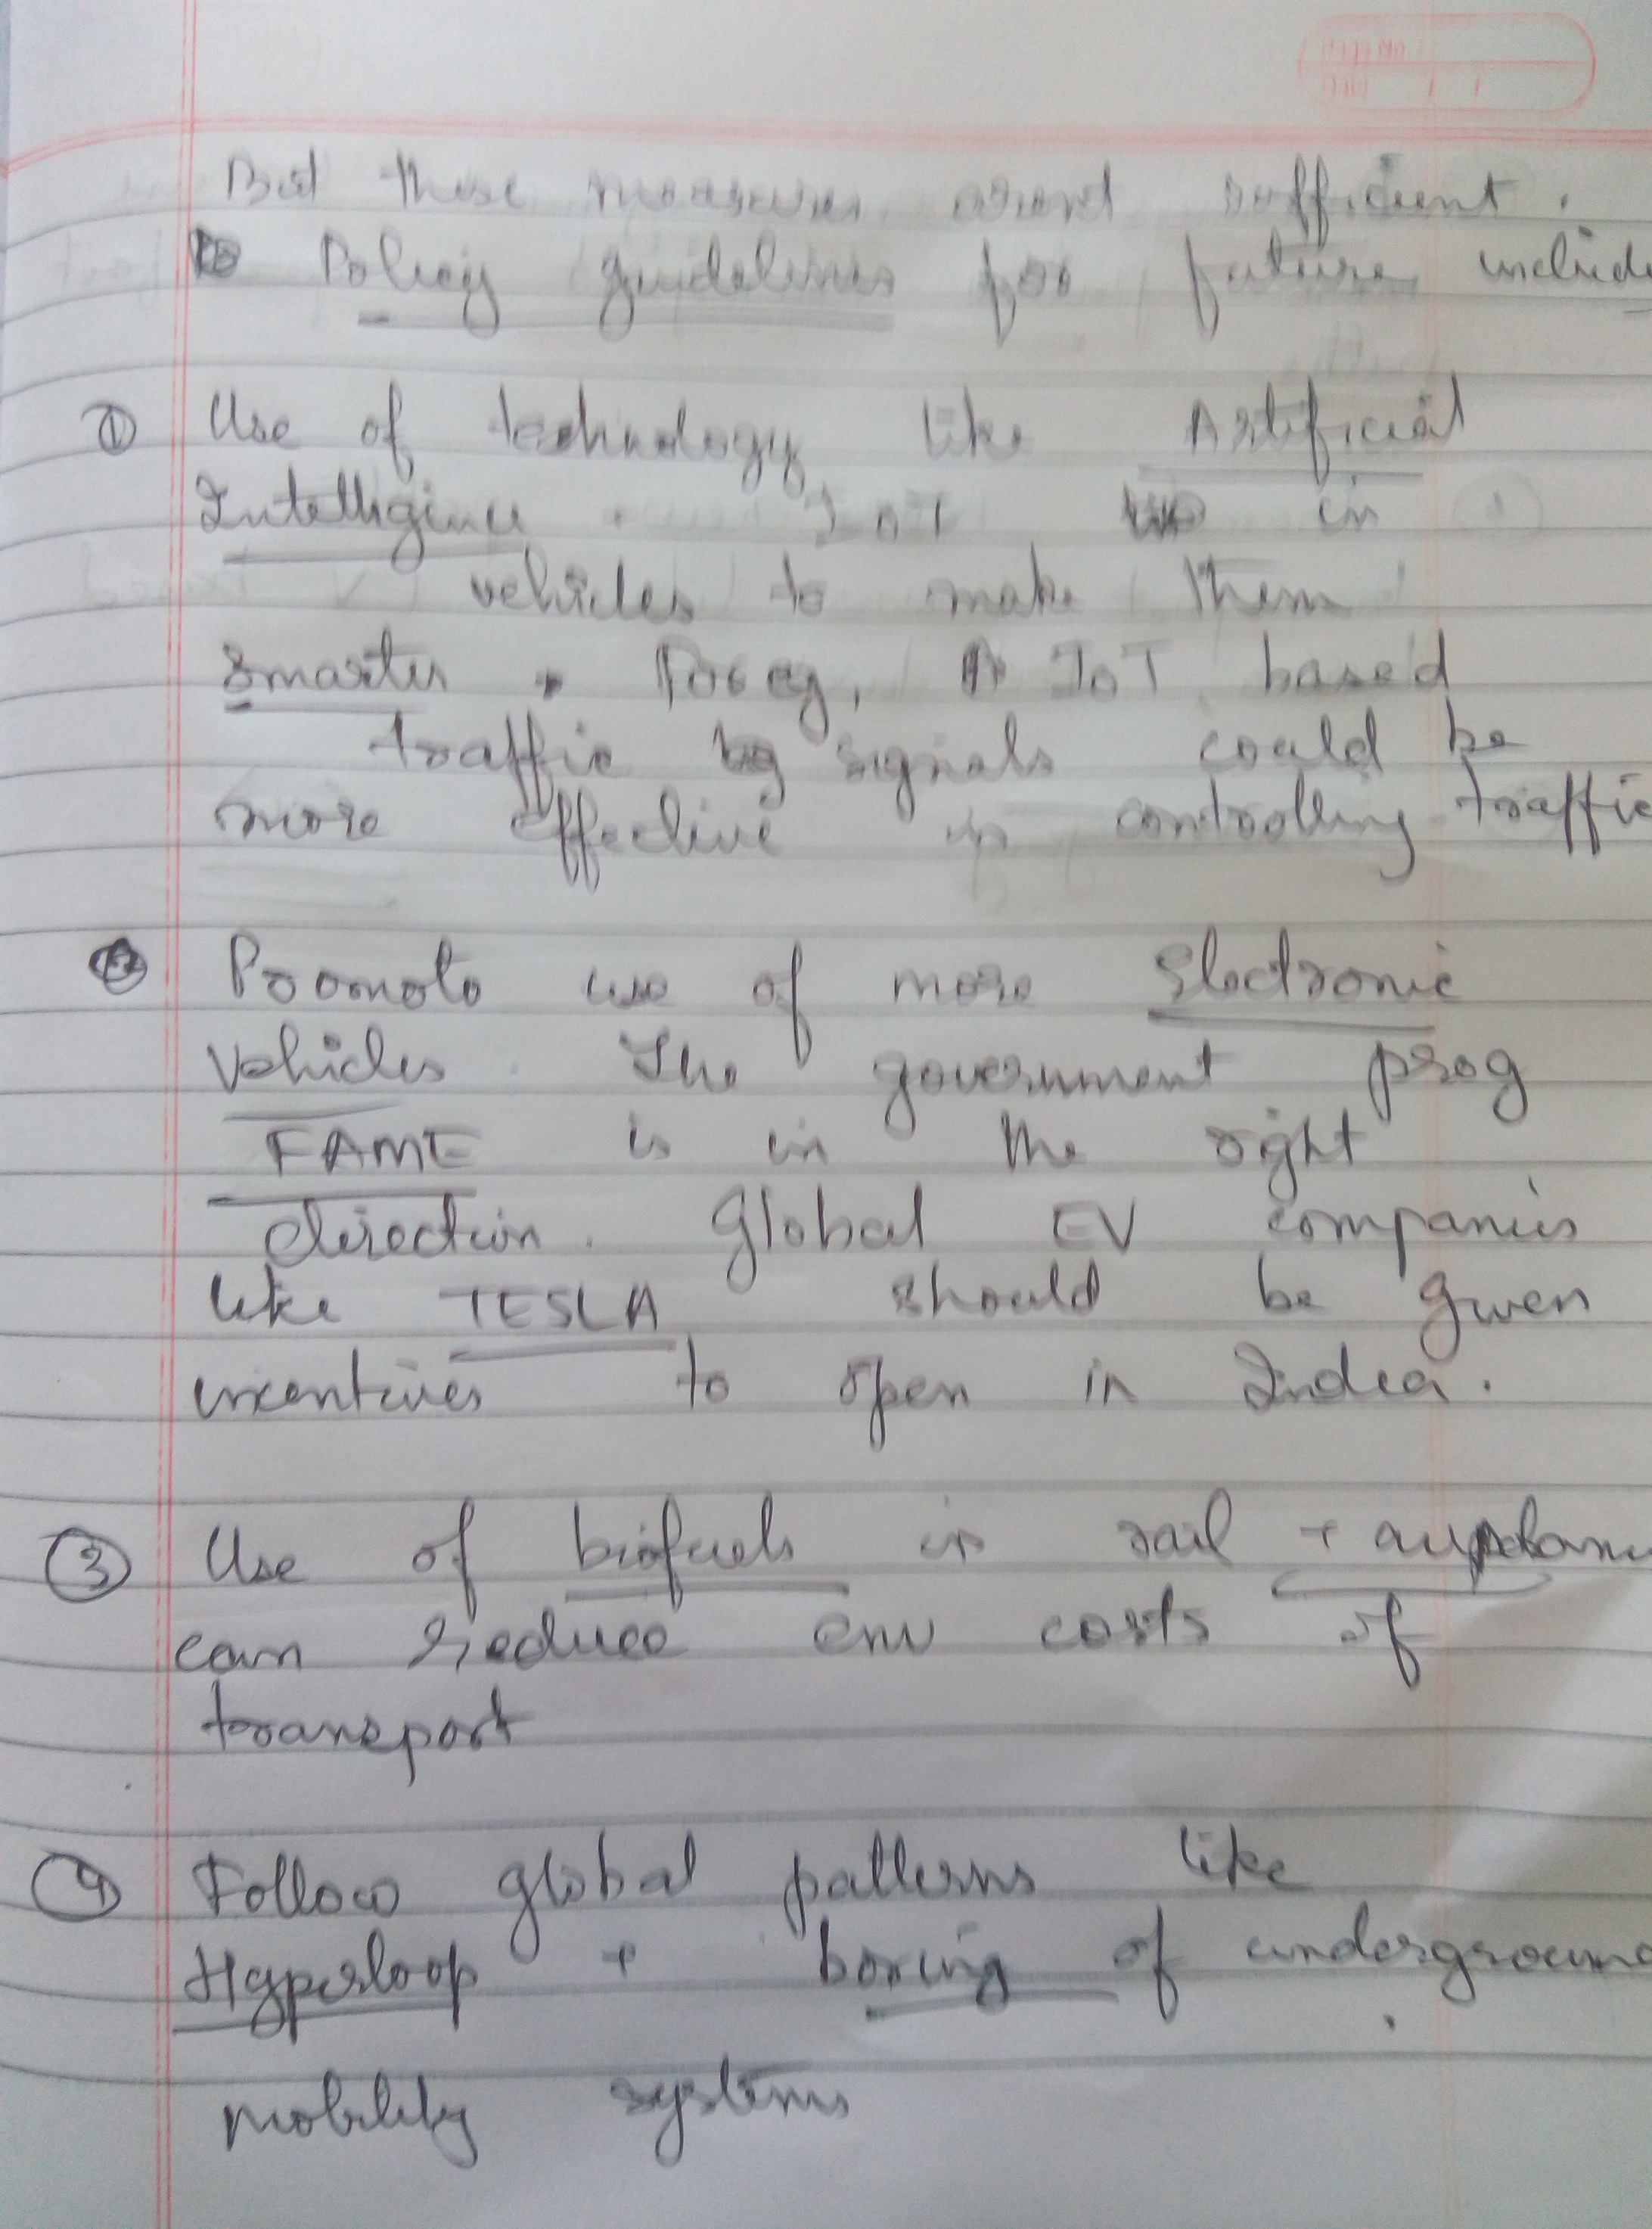 But these measures arent sufficient.
Policy guidelines for future include
① Use of technology like Artificial
Intelligence. IoT in
vehicles to make them
smarter. For eg, IoT based
traffic signals could be
more effective in controlling traffic
② Promote use of more Electronic
Vehicles. The government prog
FAME is in the right
direction. Global EV companies
like TESLA should be given
incentives to open in India.
③ Use of biofuels in rail +
can reduce env costs of
transport
④ Follow global patterns like
Hyperloop + boring of underground
mobility systems